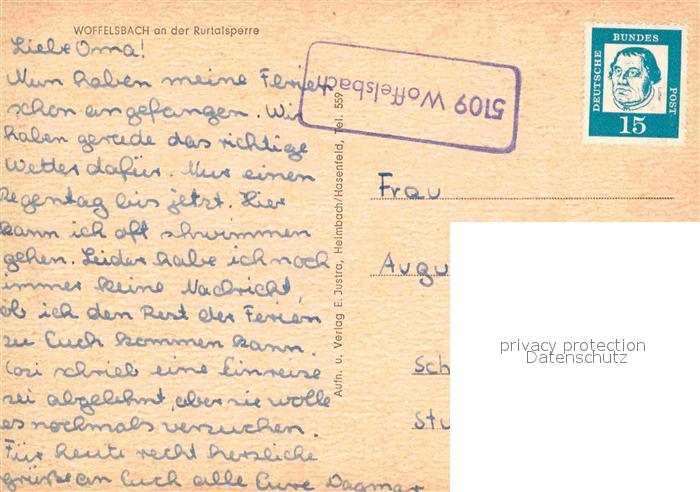 WOFFELSBACH an der Rurtalsperre
Liebe Oma!
Nun haben meine Ferien
schon angefangen. Wir
haben gerade das richtige
Wetter dafür. Nur einen
Regentag bis jetzt. Hier
kann ich oft schwimmen
gehen. Leider habe ich noch
immer keine Nachricht,
ob ich den Rest der Ferien
zu Euch kommen kann.
schrieb eine Einreise
sei abgelehnt, aber sie wolle
es nochmals versuchen.
Für heute recht herzliche
grüße an Euch alle Eure Dagmar
Aufn. u. Verlag E. Justra, Heimbach/Hasenfeld, Tel. 559
5109 Woffelsbach
DEUTSCHE BUNDES POST
15
Frau
Augu
Sch
Stu
privacy protection
Datenschutz